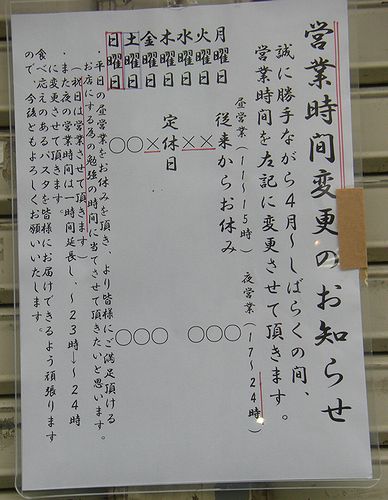 営業時間変更のお知らせ
誠に勝手ながら4月〜しばらくの間、
営業時間を左記に変更させて頂きます。
昼営業(11〜15時) 夜営業(17〜24時)
月曜日 従来からお休み ○
火曜日 × ○
水曜日 × ○
木曜日 定休日
金曜日 × ○
土曜日 ○ ○
日曜日 ○ ○
・平日の昼営業をお休みを頂き、より皆様にご満足頂ける
お店にする為の勉強の時間に当てさせて頂きたいと思います。
(祝日は営業させて頂きます)
・また夜の営業時間は一時間延長し、〜23時→〜24時
に変更させて頂きます。
食べ応えのあるパスタを皆様にお届けできるよう頑張ります
ので、今後ともよろしくお願いいたします。